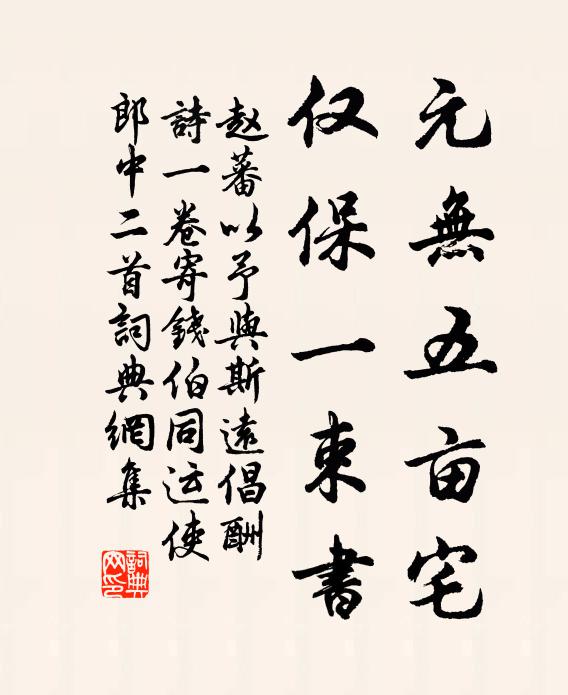 元無五亩宅
仅保一束書
赵蕃以予與斯遠倡酬
詩一卷寄錢伯同运使
郎中二首詞典網集
詞典
网印